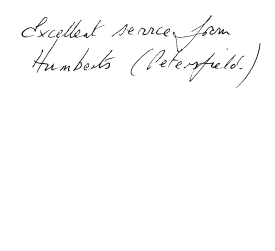 Excellent service from
Humberts (Petersfield.)